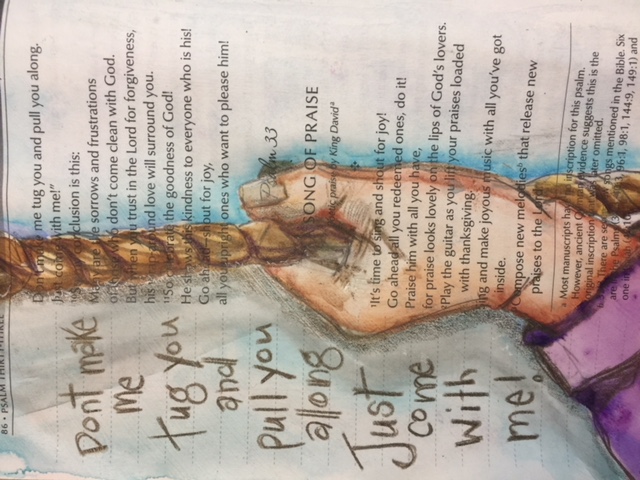 86 • PSALM THIRTY-THREE
Don't make me tug you and pull you along.
Just come with me!"
conclusion is this:
Many are the sorrows and frustrations
of those who don't come clean with God.
But when you trust in the Lord for forgiveness,
his love will surround you.
¹¹So celebrate the goodness of God!
He shows this kindness to everyone who is his!
Go ahead—shout for joy,
all you upright ones who want to please him!
Psalm 33
SONG OF PRAISE
praise by King Davidᵃ
¹It's time to sing and shout for joy!
Go ahead, all you redeemed ones, do it!
Praise him with all you have,
for praise looks lovely on the lips of God's lovers.
Play the guitar as you lift your praises loaded
with thanksgiving.
Sing and make joyous music with all you've got
inside.
Compose new melodies that release new
praises to the Lord.
a Most manuscripts have inscription for this psalm.
However, ancient evidence suggests this is the
original inscription later omitted.
There are songs mentioned in the Bible. Six
are in Psalm 96:1, 98:1, 144:9, 149:1) and
one in
Dont make
me
tug you
and
pull you
allong
Just
come
with
me!